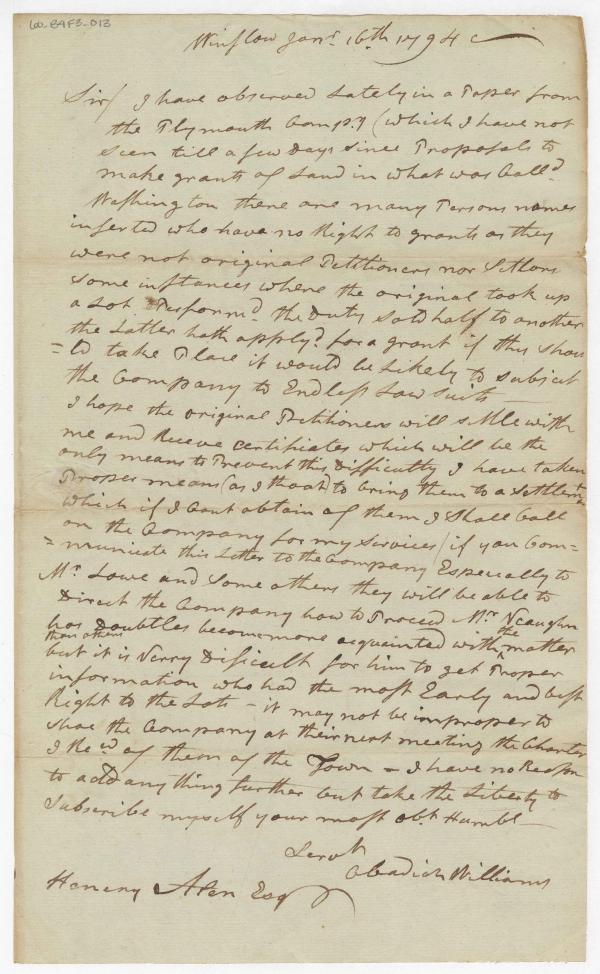 Winslow Janr. 16th. 1794
Sir/ I have observed Lately in a Paper from
the Plymouth Comp.y (which I have not
Seen till a few Days Since Proposals to
make grants of Land in what was Calld.
Washington there are many Persons names
inserted who have no Right to grants as they
were not original Petitioners nor Setlors
Some instances where the original took up
a Lot Performd. the Duty Sold half to another
the Latter hath applyd. for a grant if this Shou
=ld take Place it would be Likely to Subject
the Company to Endless Law Suits
I hope the original Petitioners will Settle with
me and Receve certificates which will be the
only means to Prevent this Difficulty I have taken
Proper means (as I thoat) to bring them to a Settlemt
which if I Cant obtain of them I Shall Call
on the Company for my Services / if you Com=
=municate this Letter to the Company Especially to
Mr. Lowe and Some others they will be able to
Direct the Company how to Proceed Mr. Vcaughn
has Doubtles become more acquainted with the matter
than others
but it is Verry Dificult for him to get Proper
information who had the most Early and best
Right to the Lots - it may not be improper to
Shoe the Company at their next meating the Charter
I Recd. of them of the Town - I have no Reason
to add any thing further but take the Liberty to
Subscribe myself your most obt. Humbl
Servt
Obadiah Williams
Henery Alen Esq